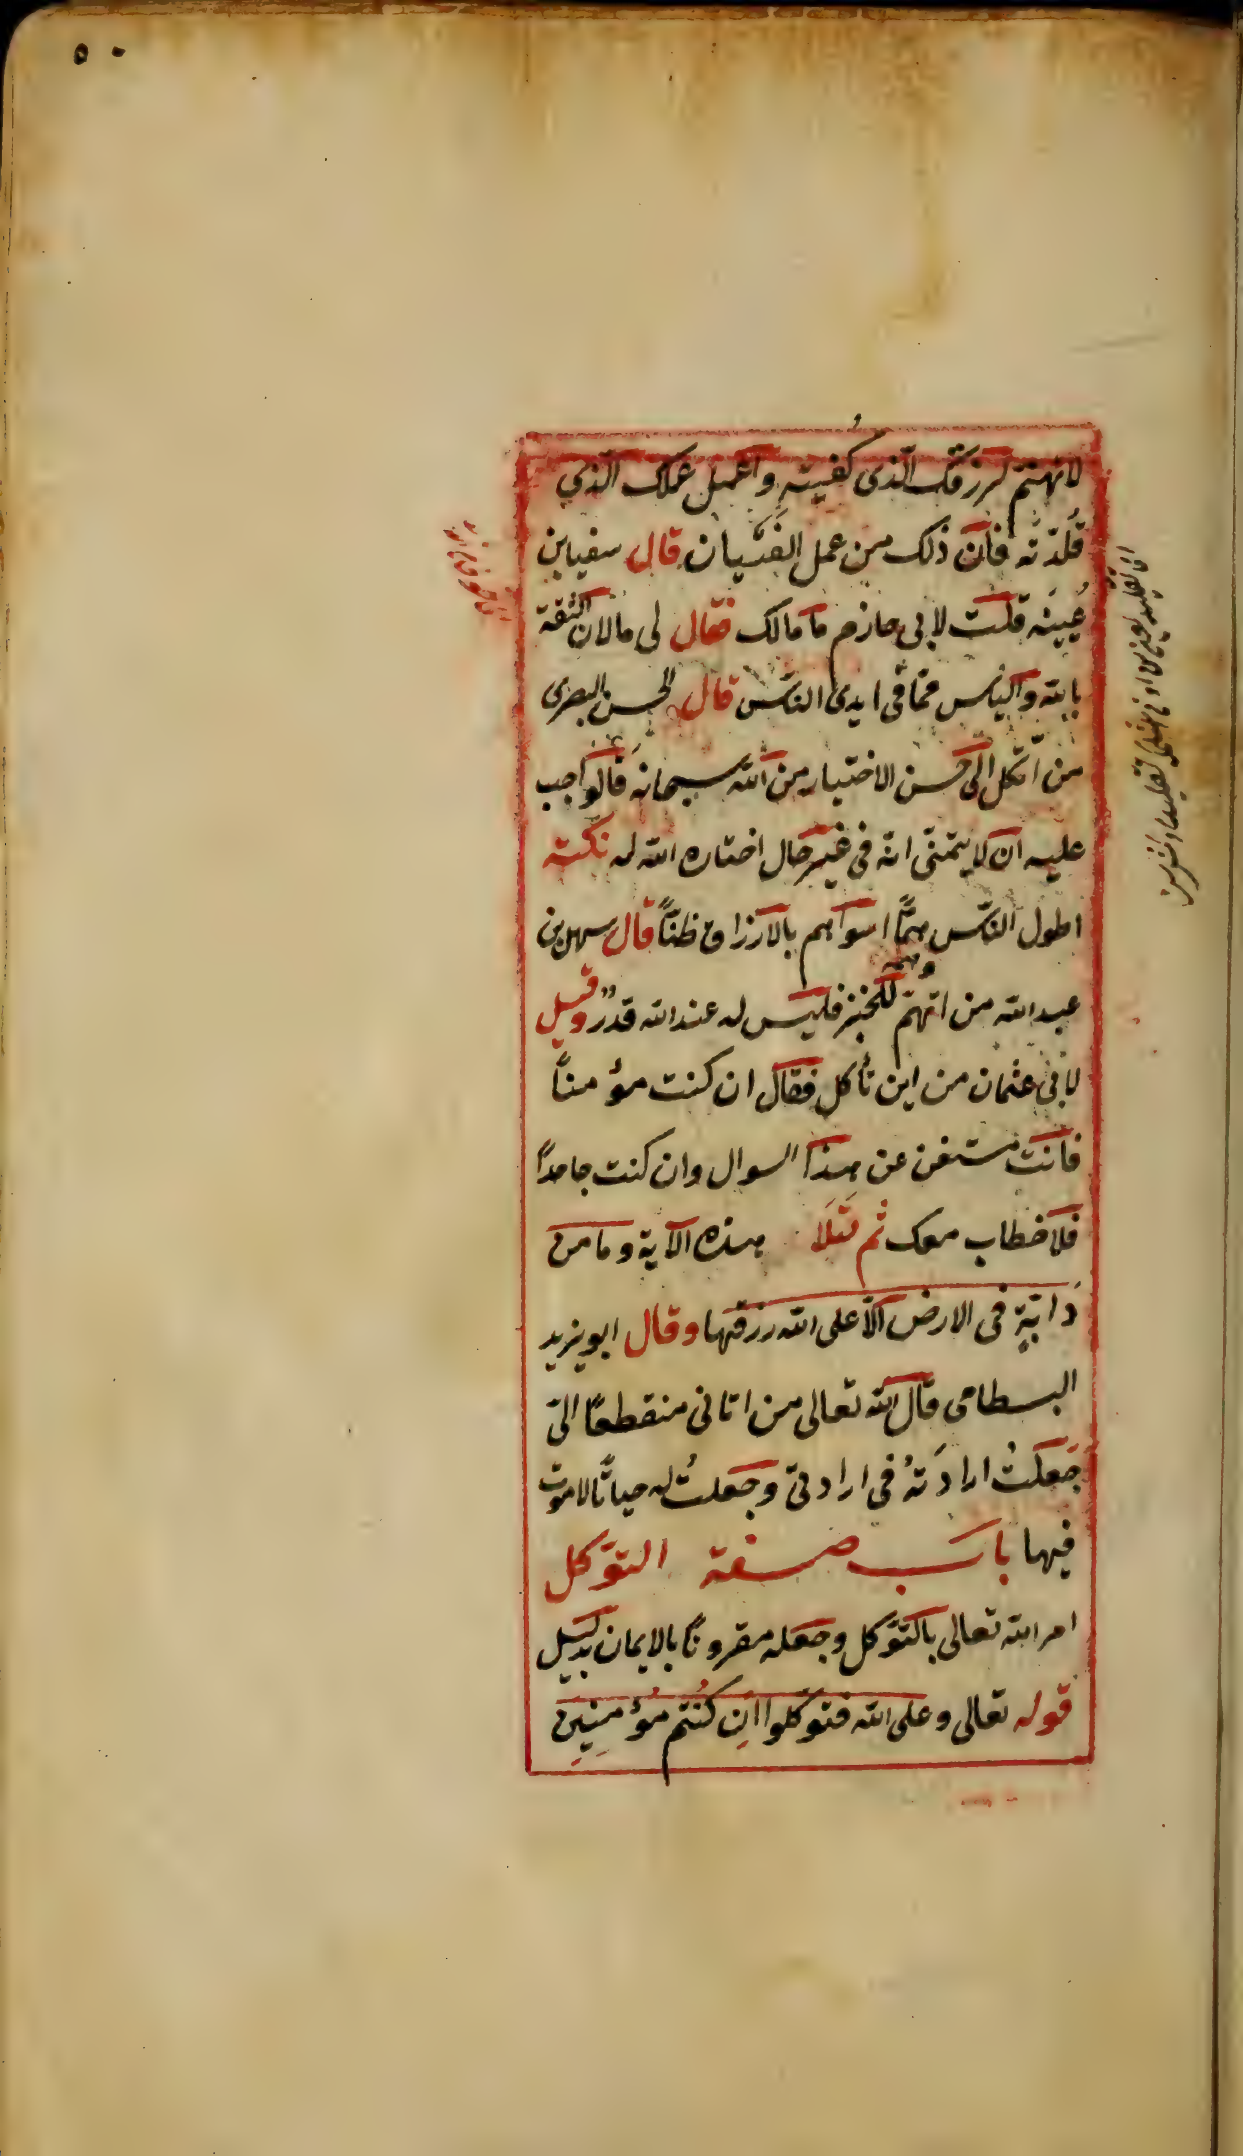 ٥٠
لا تهتم لرزقك الّذى كُفيته واعمل عملك الّذي
قُلّدته فانّ ذلك من عمل الفتيان قال سفيان بن
عُيينَه قلت لابى حازم ما مالك فقال لى مالان الثقة
بالله والياس ممّا فى ايدى النّاس قال الحسن البصرى
من اتّكل الى حسن الاختيار من الله سبحانهَ فالواجب
عليه ان لا يتمنّى انه فى غير حال اختاره الله له نكته
اطول النّاس همًّا اسواهم بالارزاق ظنّاً قال سهل بن
عبد الله من اتّهمّ للخبز فليس له عند الله قدرٌ وقيل
لابى عثمان من اين تأكل فقال ان كنت مؤمناً
فانت مستغن عن هذا السوال وان كنت جاحداً
فلا خطاب معك ثم تَلَا هذه الآية وما من
دَابّةٍ فى الارض الّا على الله رزقها وقال ابو يزيد
البسطامى قال الله تعالى من اتانى منقطعًا الىّ
جَعلتُ ارادَتهُ فى ارادتىّ وجعلتُ له حياتًا لا موت
فيها باب صفة التوّكل
امر الله تعالى بالتّوكل وجعله مقروناً بالايمان بدليل
قوله تعالى وعلى الله فتوكّلوا اِن كُنتم مُؤمِنِينَ